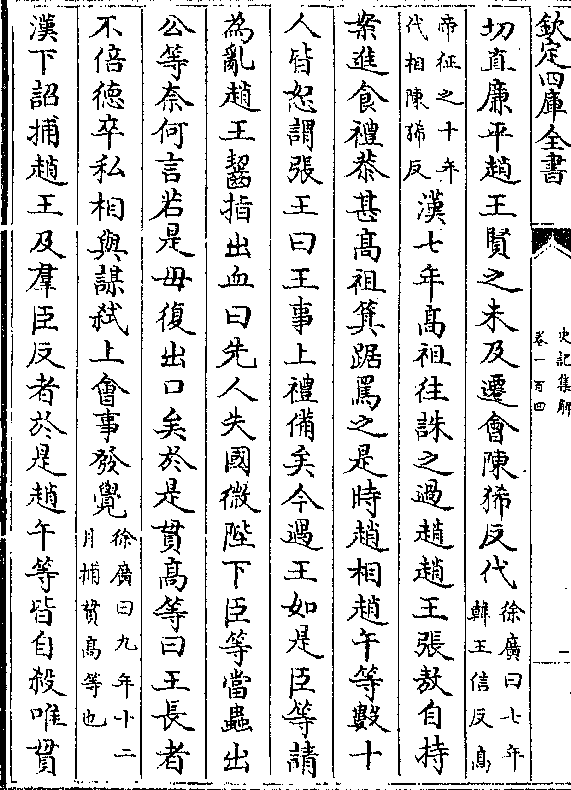 欽定四庫全書
史記集解
卷一百四
一
切直廉平趙王賢之未及遷會陳豨反代徐廣曰七年韓王信反高
帝征之十年代相陳豨反漢七年高祖往誅之過趙趙王張敖自持
案進食禮恭甚高祖箕踞罵之是時趙相趙午等數十
人皆怒謂張王曰王事上禮備矣今遇王如是臣等請
為亂趙王齧指出血曰先人失國微陛下臣等當蟲出
公等奈何言若是毋復出口矣於是貫高等曰王長者
不倍德卒私相與謀弒上會事發覺徐廣曰九年十二月捕貫高等也
漢下詔捕趙王及羣臣反者於是趙午等皆自殺唯貫